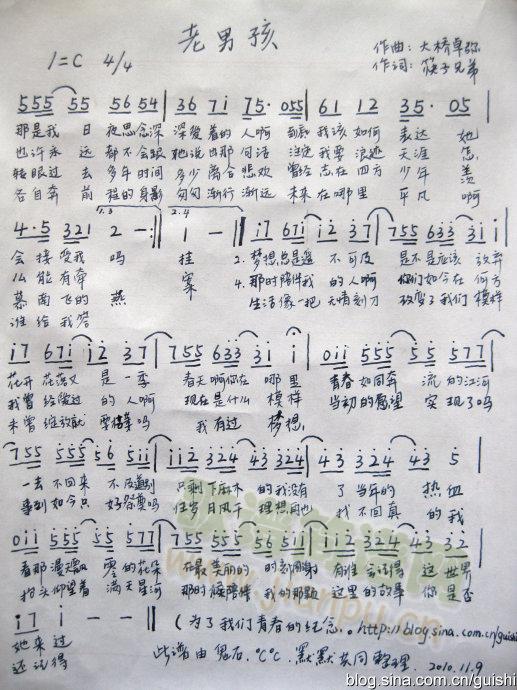 老男孩
1=C 4/4
作曲:大桥卓弥
作词:筷子兄弟
555 55 56 54 | 36 7i 75· 055 | 61 12 35· 05 |
那是我 日 夜思念深 深爱着的 人啊 到底 我该 如何 表达 她
也许永 远 都不会跟 她说出那 句话 注定 我要 浪迹 天涯 怎
转眼过 去 多年时间 多少离合 悲欢 曾经 志在 四方 少年 羡
各自奔 前 程的身影 匆匆渐行 渐远 未来 在哪里 平凡 啊
1.3 2.4
4·5 321 2 - :| 1 - | i7 67i i2 37 | 755 633 3i i |
会 接受我 吗 挂 2. 梦想总是遥 不可及 是不是应该 放弃
么 能有牵 案 4. 那时陪伴我 的人啊 你们如今在 何方
慕 南飞的 燕 生活像一把 无情刻刀 改变了我们 模样
谁 给我答
i7 67i i2 37 | 755 633 3i i | 0ii 555 55 577 |
花开 花落又 是一季 春天啊你在 哪里 青春 如同奔 流的江河
我曾 经爱过 的人啊 现在是什么 模样 当初的愿望 实现了吗
未曾 绽放就 要枯萎吗 我有过 梦想
755 555 56 5i | ii2 324 43 324 | 43 324 43 5 |
一去 不回来 不及道别 只剩下麻木 的我没有 了 当年的 热血
事到 如今只 好祭奠吗 任岁月风干 理想再也 找 不回真 的我
0ii 555 55 577 | 755 555 56 5ii | ii2 324 43 22 |
看那 漫天飘 零的花朵 在最 美丽的 时刻凋谢 有谁 会记得 这世界
抬头 仰望着 满天星河 那时候陪伴 我的那颗 这里的故事 你是否
i7 i - - |
她来 过
还记得
(为了我们青春的纪念。http://blog.sina.com.cn/guishi)
此谱由 男石、℃℃、默默共同整理. 2010.11.9
www.jianpu.cn
blog.sina.com.cn/guishi